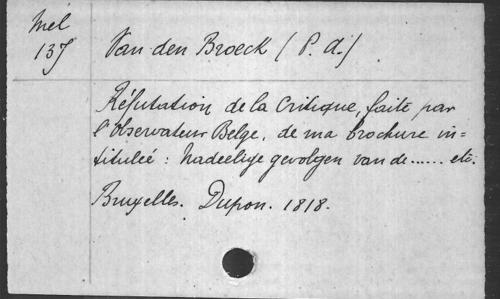 Mél
137
Van den Broeck (P. A.)
Réfutation de la Critique, faite par
l'Observateur Belge, de ma brochure in=
titulée : Nadeelige gevolgen van de...... etc.
Bruxelles. Dupon. 1818.